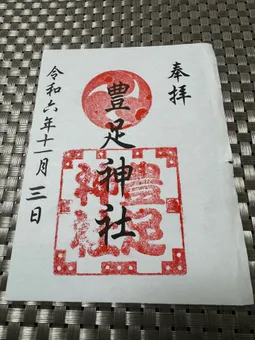 奉拝
豊足神社
令和六年十一月三日
豊足
神社